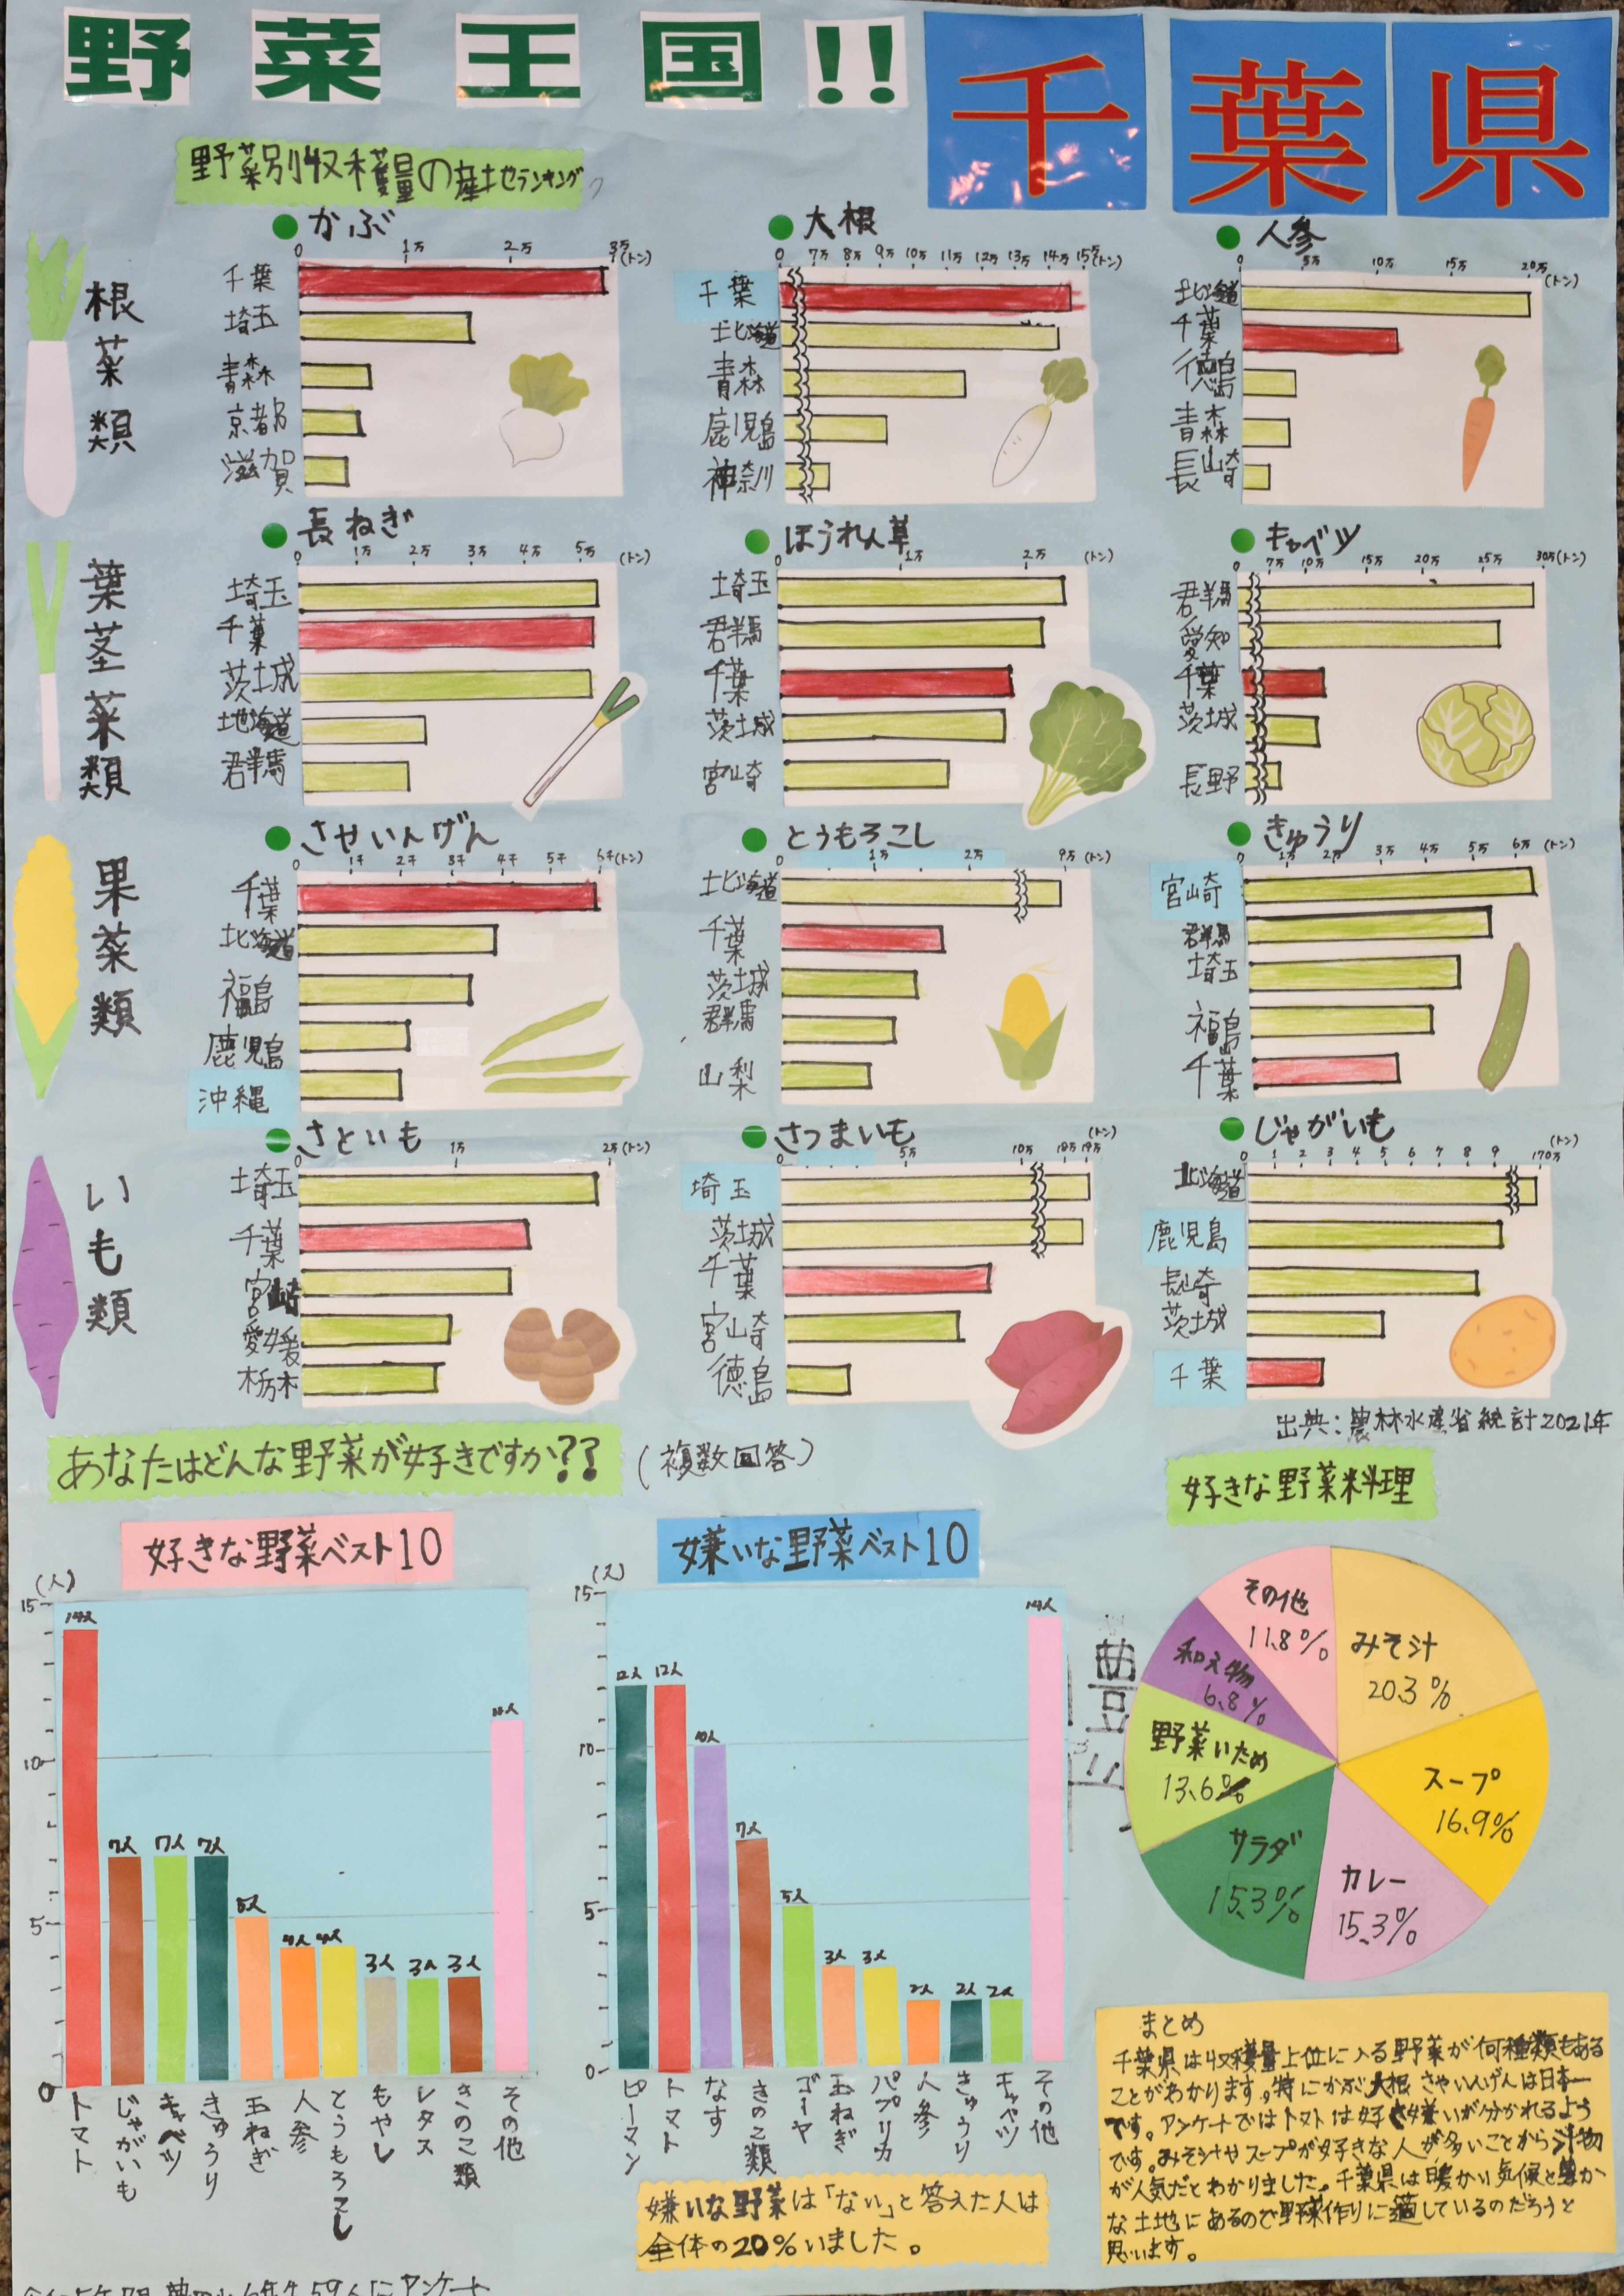 野菜王国!! 千葉県
野菜別収穫量の産地ランキング
根菜類
かぶ
0 1万 2万 3万(トン)
千葉
埼玉
青森
京都
滋賀
大根
0 7万 8万 9万 10万 11万 12万 13万 14万 15万(トン)
千葉
北海道
青森
鹿児島
神奈川
人参
0 5万 10万 15万 20万(トン)
北海道
千葉
徳島
青森
長崎
葉茎菜類
長ねぎ
0 1万 2万 3万 4万 5万(トン)
埼玉
千葉
茨城
北海道
群馬
ほうれん草
0 1万 2万(トン)
埼玉
群馬
千葉
茨城
宮崎
キャベツ
0 7万 10万 15万 20万 25万 30万(トン)
群馬
愛知
千葉
茨城
長野
果菜類
さやいんげん
0 1千 2千 3千 4千 5千 6千(トン)
千葉
北海道
福島
鹿児島
沖縄
とうもろこし
0 1万 2万 9万(トン)
北海道
千葉
茨城
群馬
山梨
きゅうり
0 1万 2万 3万 4万 5万 6万(トン)
宮崎
群馬
埼玉
福島
千葉
いも類
さといも
0 1万 2万(トン)
埼玉
千葉
宮崎
愛媛
栃木
さつまいも
0 5万 10万 18万 19万(トン)
埼玉
茨城
千葉
宮崎
徳島
じゃがいも
0 1 2 3 4 5 6 7 8 9 170万(トン)
北海道
鹿児島
長崎
茨城
千葉
出典:農林水産省統計2021年
あなたはどんな野菜が好きですか??(複数回答)
好きな野菜ベスト10
(人)
15
10
5
0
14人 7人 7人 7人 5人 4人 4人 3人 3人 3人 11人
トマト じゃがいも キャベツ きゅうり 玉ねぎ 人参 とうもろこし もやし レタス きのこ類 その他
嫌いな野菜ベスト10
(人)
15
10
5
0
12人 12人 10人 7人 5人 3人 3人 2人 2人 2人 14人
ピーマン トマト なす きのこ類 ゴーヤ 玉ねぎ パプリカ 人参 きゅうり キャベツ その他
嫌いな野菜は「ない」と答えた人は
全体の20%いました。
好きな野菜料理
みそ汁
20.3%
スープ
16.9%
カレー
15.3%
サラダ
15.3%
野菜いため
13.6%
和え物
6.8%
その他
11.8%
まとめ
千葉県は収穫量上位に入る野菜が何種類もある
ことがわかります。特にかぶ大根さやいんげんは日本一
です。アンケートではトマトは好き嫌いが分かれるよう
です。みそ汁やスープが好きな人が多いことから汁物
が人気だとわかりました。千葉県は暖かい気候と豊か
な土地にあるので野菜作りに適しているのだろうと
思います。